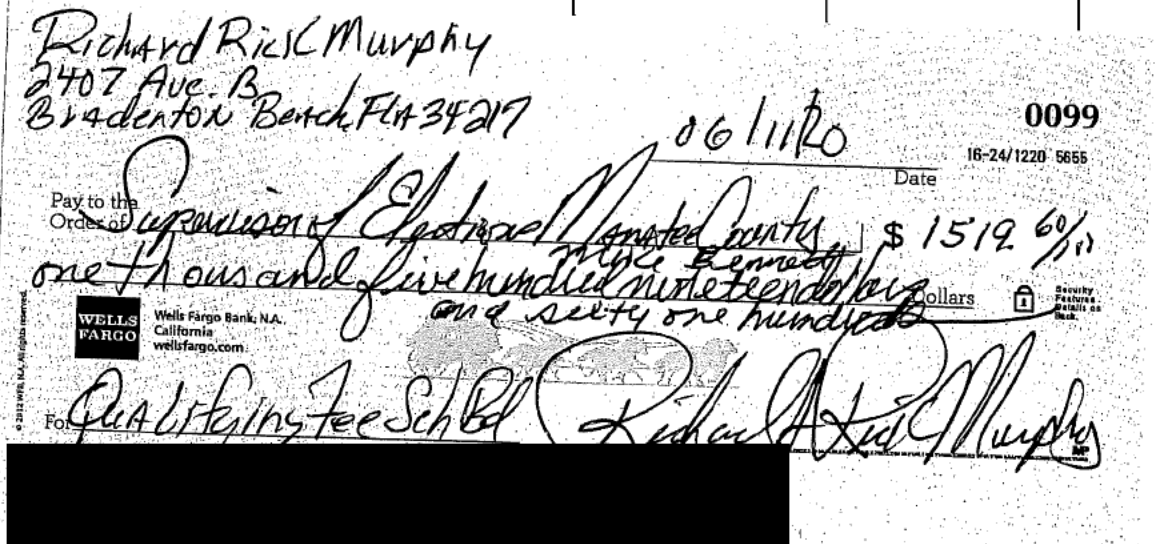 Richard Rick Murphy
2407 Ave. B
Bradenton Beach, FlA 34217
0099
06/11/20
16-24/1220 5655
Date
Pay to the
Order of Supervisor of Elections Manatee County $ 1519 60/100
Mike Bennett
one thousand five hundred nineteen dollars Dollars
and sixty one hundreds
Security
Features
Details on
Back.
WELLS
FARGO
Wells Fargo Bank, N.A.
California
wellsfargo.com
© 2012 WFB, N.A. All rights reserved.
For Qualifying Fee Sch Bd
Richard A Rick Murphy
MP